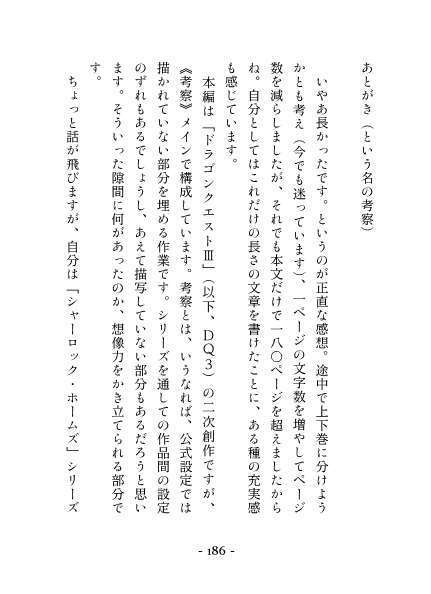 あとがき（という名の考察）
いやあ長かったです。というのが正直な感想。途中で上下巻に分けよう
かとも考え（今でも迷っています）、一ページの文字数を増やしてページ
数を減らしましたが、それでも本文だけで一八〇ページを超えましたから
ね。自分としてはこれだけの長さの文章を書けたことに、ある種の充実感
も感じています。
本編は「ドラゴンクエストⅢ」（以下、ＤＱ３）の二次創作ですが、
《考察》メインで構成しています。考察とは、いうなれば、公式設定では
描かれていない部分を埋める作業です。シリーズを通しての作品間の設定
のずれもあるでしょうし、あえて描写していない部分もあるだろうと思い
ます。そういった隙間に何があったのか、想像力をかき立てられる部分で
す。
ちょっと話が飛びますが、自分は「シャーロック・ホームズ」シリーズ
- 186 -